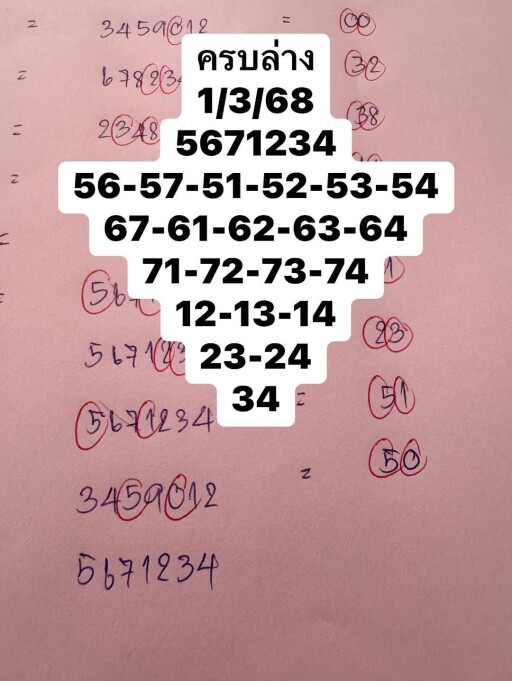 = 3459012 = 00
= 67823 32
= 2348 38
=
ครบล่าง
1/3/68
5671234
56-57-51-52-53-54
67-61-62-63-64
71-72-73-74
12-13-14
23-24
34
567 1
567123 23
5671234 = 51
3459012 = 50
5671234